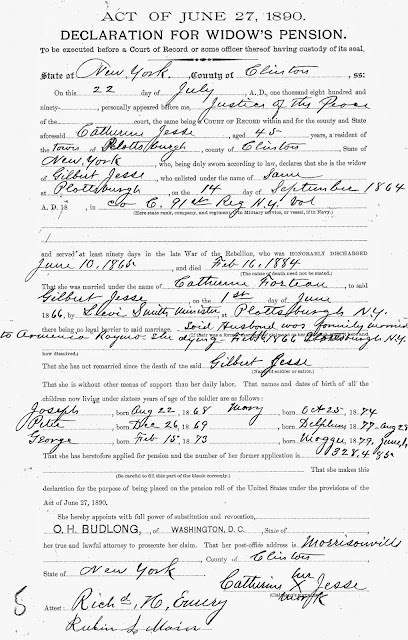 ACT OF JUNE 27, 1890.
DECLARATION FOR WIDOW'S PENSION.
To be executed before a Court of Record or some officer thereof having custody of its seal.
State of New York, County of Clinton, ss:
On this 22 day of July A. D., one thousand eight hundred and
ninety-, personally appeared before me, Justice of the Peace
of the court, the same being a COURT OF RECORD within and for the county and State
aforesaid Catherine Jesse, aged 45 years, a resident of
the town of Plattsburgh, county of Clinton, State of
New York, who, being duly sworn according to law, declares that she is the widow
of Gilbert Jesse, who enlisted under the name of Same
at Plattsburgh, on the 14 day of September 1864
A. D. 18, in Co E. 91st Reg N.Y. Vol
(Here state rank, company, and regiment, if in Military service, or vessel, if in Navy.)
and served at least ninety days in the late War of the Rebellion, who was HONORABLY DISCHARGED
June 10, 1865, and died Feb 16, 1884
(The cause of death need not be stated.)
That she was married under the name of Catherine Forteau, to said
Gilbert Jesse, on the 1st day of June
1866, by Levi Smith Minister, at Plattsburgh N.Y.
there being no legal barrier to said marriage. Said Husband was formerly married
to Armenia Raymo She dying Feb 1866 Plattsburgh N.Y.
how dissolved.)
That she has not remarried since the death of the said Gilbert Jesse
That she is without other means of support than her daily labor. That names and dates of birth of all the
children now living under sixteen years of age of the soldier are as follows:
Joseph, born Aug 22, 1868 Mary, born Oct 25, 1874
Peter, born Dec 26, 1869 Delphin, born 1877 Aug 28
George, born Feb 15, 1873 Maggie, born 1879, June 1,
That she has heretofore applied for pension and the number of her former application is 328.435
(Be careful to fill this part of the blank correctly.) That she makes this
declaration for the purpose of being placed on the pension roll of the United States under the provisions of the
Act of June 27, 1890.
She hereby appoints with full power of substitution and revocation,
O. H. BUDLONG, of WASHINGTON, D. C. State of
her true and lawful attorney to prosecute her claim. That her post-office address is Morrisonville
, County of Clinton
State of New York
Catherine her X mark Jesse
Attest: Rich'd H. Emery